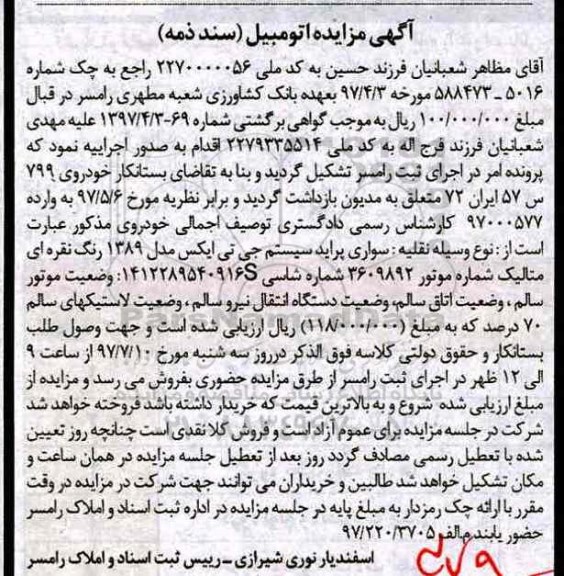 آگهی مزایده اتومبیل (سند ذمه)
آقای مظاهر شعبانیان فرزند حسین به کد ملی ۲۲۷۰۰۰۰۰۵۶ راجع به چک شماره
۵۰۱۶ ـ ۵۸۸۴۷۳ مورخه ۹۷/۴/۳ بعهده بانک کشاورزی شعبه مطهری رامسر در قبال
مبلغ ۱۰۰/۰۰۰/۰۰۰ ریال به موجب گواهی برگشتی شماره ۶۹-۱۳۹۷/۴/۳ علیه مهدی
شعبانیان فرزند فرج اله به کد ملی ۲۲۷۹۳۳۵۵۱۴ اقدام به صدور اجراییه نمود که
پرونده امر در اجرای ثبت رامسر تشکیل گردید و بنا به تقاضای بستانکار خودروی ۷۹۹
س ۵۷ ایران ۷۲ متعلق به مدیون بازداشت گردید و برابر نظریه مورخ ۹۷/۵/۶ به وارده
۹۷۰۰۰۵۷۷ کارشناس رسمی دادگستری توصیف اجمالی خودروی مذکور عبارت
است از : نوع وسیله نقلیه : سواری پراید سیستم جی تی ایکس مدل ۱۳۸۹ رنگ نقره ای
متالیک شماره موتور ۳۶۰۹۸۹۲ شماره شاسی S۱۴۱۲۲۸۹۵۴۰۹۱۶: وضعیت موتور
سالم ، وضعیت اتاق سالم، وضعیت دستگاه انتقال نیرو سالم ، وضعیت لاستیکهای سالم
۷۰ درصد که به مبلغ (۱۱۸/۰۰۰/۰۰۰) ریال ارزیابی شده است و جهت وصول طلب
بستانکار و حقوق دولتی کلاسه فوق الذکر درروز سه شنبه مورخ ۹۷/۷/۱۰ از ساعت ۹
الی ۱۲ ظهر در اجرای ثبت رامسر از طرق مزایده حضوری بفروش می رسد و مزایده از
مبلغ ارزیابی شده شروع و به بالاترین قیمت که خریدار داشته باشد فروخته خواهد شد
شرکت در جلسه مزایده برای عموم آزاد است و فروش کلا نقدی است چنانچه روز تعیین
شده با تعطیل رسمی مصادف گردد روز بعد از تعطیل جلسه مزایده در همان ساعت و
مکان تشکیل خواهد شد طالبین و خریداران می توانند جهت شرکت در مزایده در وقت
مقرر با ارائه چک رمزدار به مبلغ پایه در جلسه مزایده در اداره ثبت اسناد و املاک رامسر
حضور یابند م.الف ۹۷/۲۲۰/۳۷۰۵
اسفندیار نوری شیرازی ـ رییس ثبت اسناد و املاک رامسر